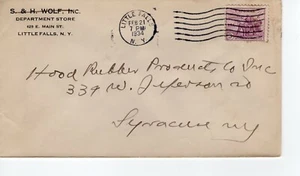 S. & H. WOLF, INC.
DEPARTMENT STORE
LITTLE FALLS, N.Y.
LITTLE FALLS
FEB 21
7 PM
1934
N.Y.
Hood Rubber Products Co Inc
339 W. Jefferson
Syracuse NY